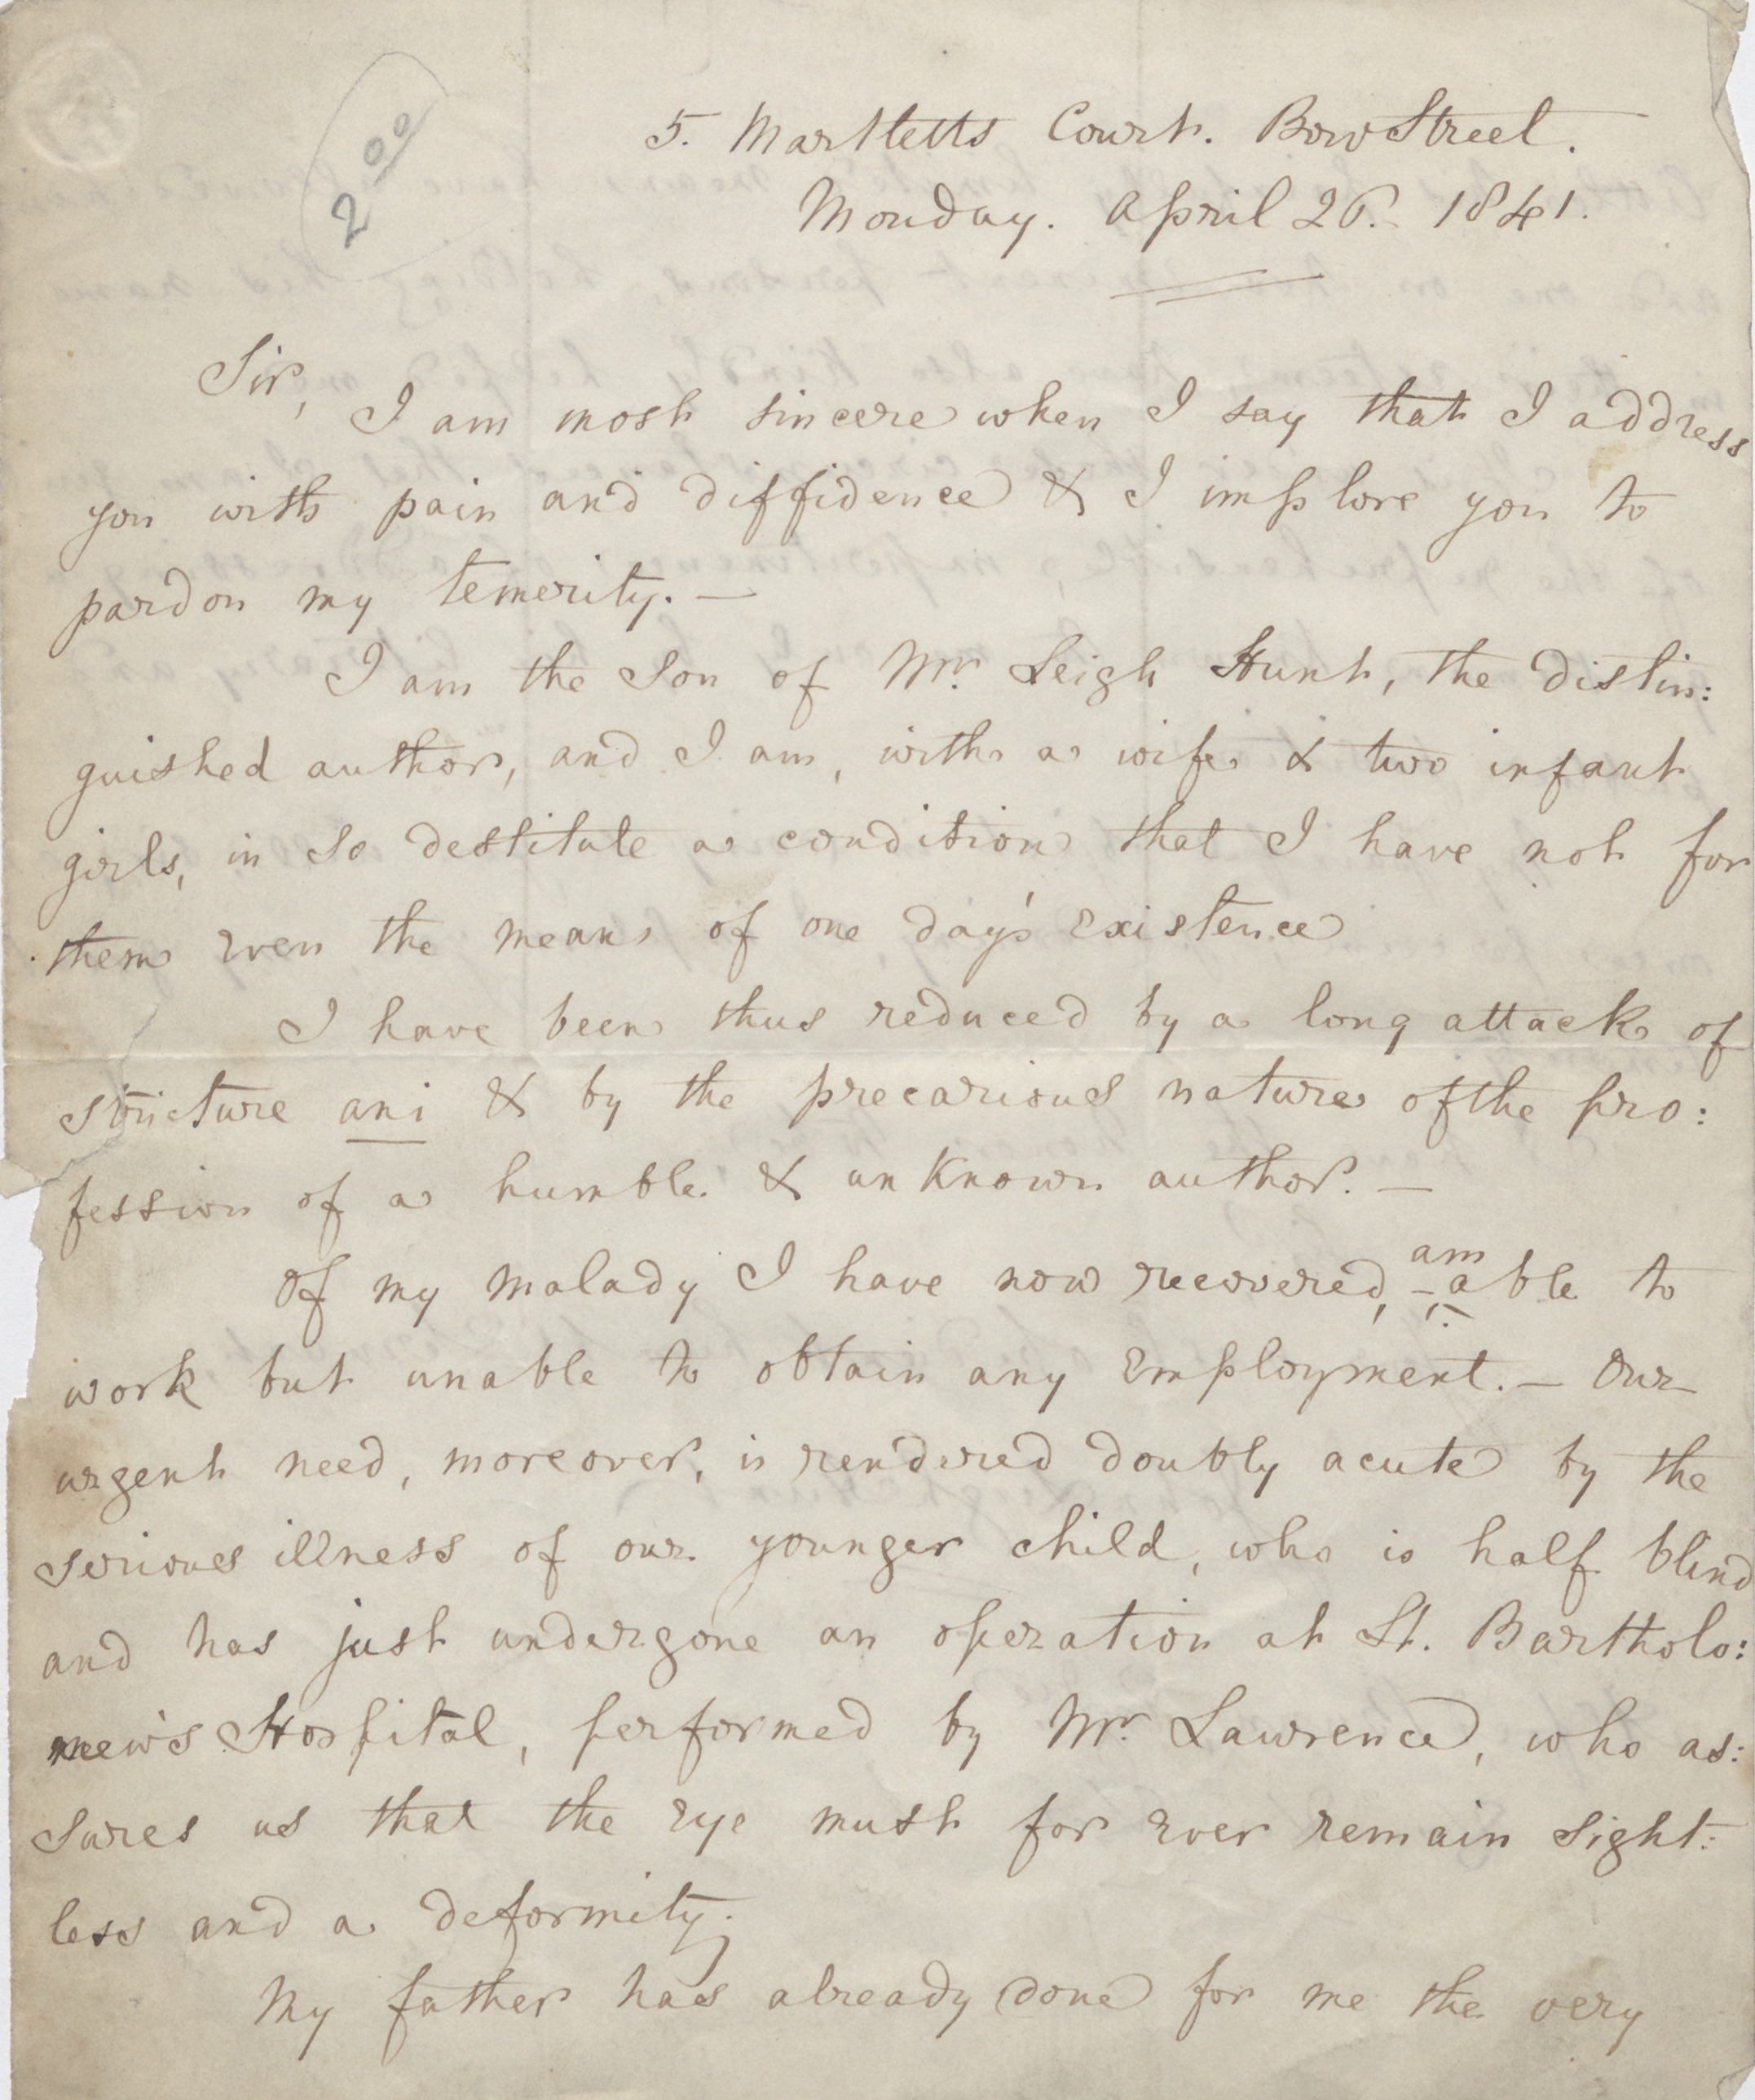 2 00
5. Martletts Court. Bow Street.
Monday. April 26. 1841.
Sir,
I am most sincere when I say that I address
you with pain and diffidence & I implore you to
pardon my temerity. —
I am the Son of Mr. Leigh Hunt, the distin:
guished author, and I am, with a wife & two infant
girls, in so destitute a condition that I have not for
them even the means of one day's existence
I have been thus reduced by a long attack of
stricture ani & by the precarious nature of the pro:
fession of a humble & unknown author. —
Of my malady I have now recovered, am able to
work but unable to obtain any employment. — Our
urgent need, moreover, is rendered doubly acute by the
serious illness of our younger child, who is half blind
and has just undergone an operation at St. Bartholo:
mew's Hospital, performed by Mr. Lawrence, who as:
sures us that the eye must for ever remain sight:
less and a deformity.
My father has already done for me the very